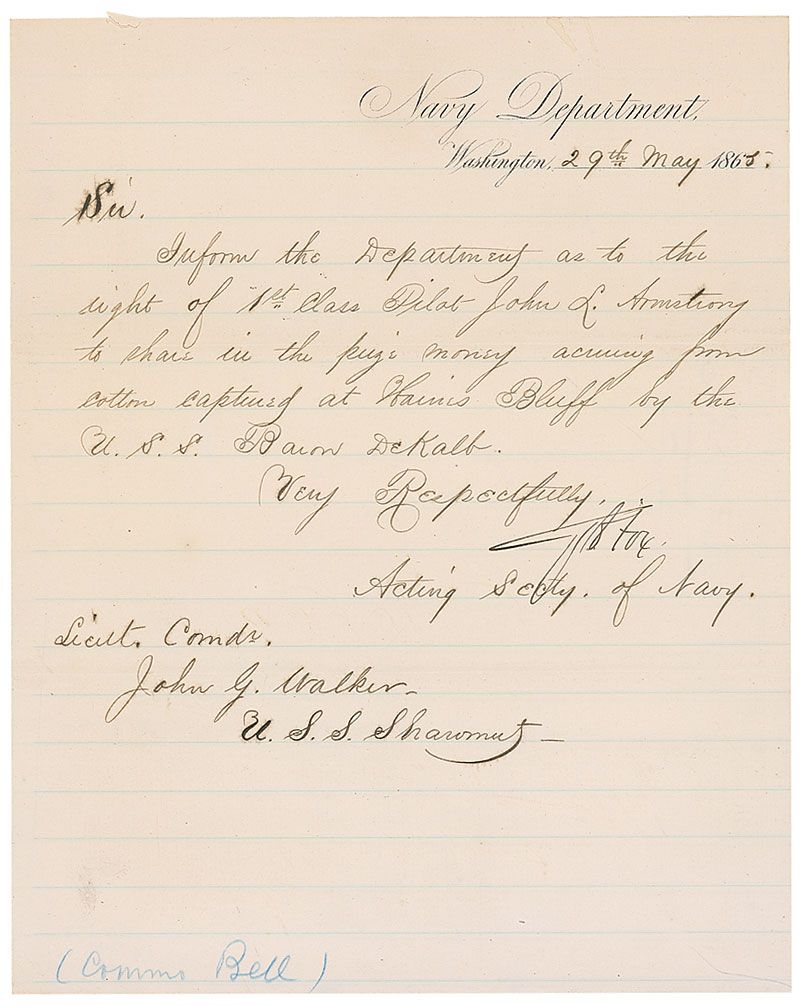 Navy Department,
Washington, 29th May 1865.
Sir.
Inform the Department as to the
right of 1st Class Pilot John L. Armstrong
to share in the prize money accruing from
cotton captured at Hains Bluff by the
U. S. S. Baron DeKalb.
Very Respectfully,
G V Fox.
Acting Secty. of Navy.
Lieut. Comdr.
John G. Walker
U. S. S. Shawmut
(Commo Bell)